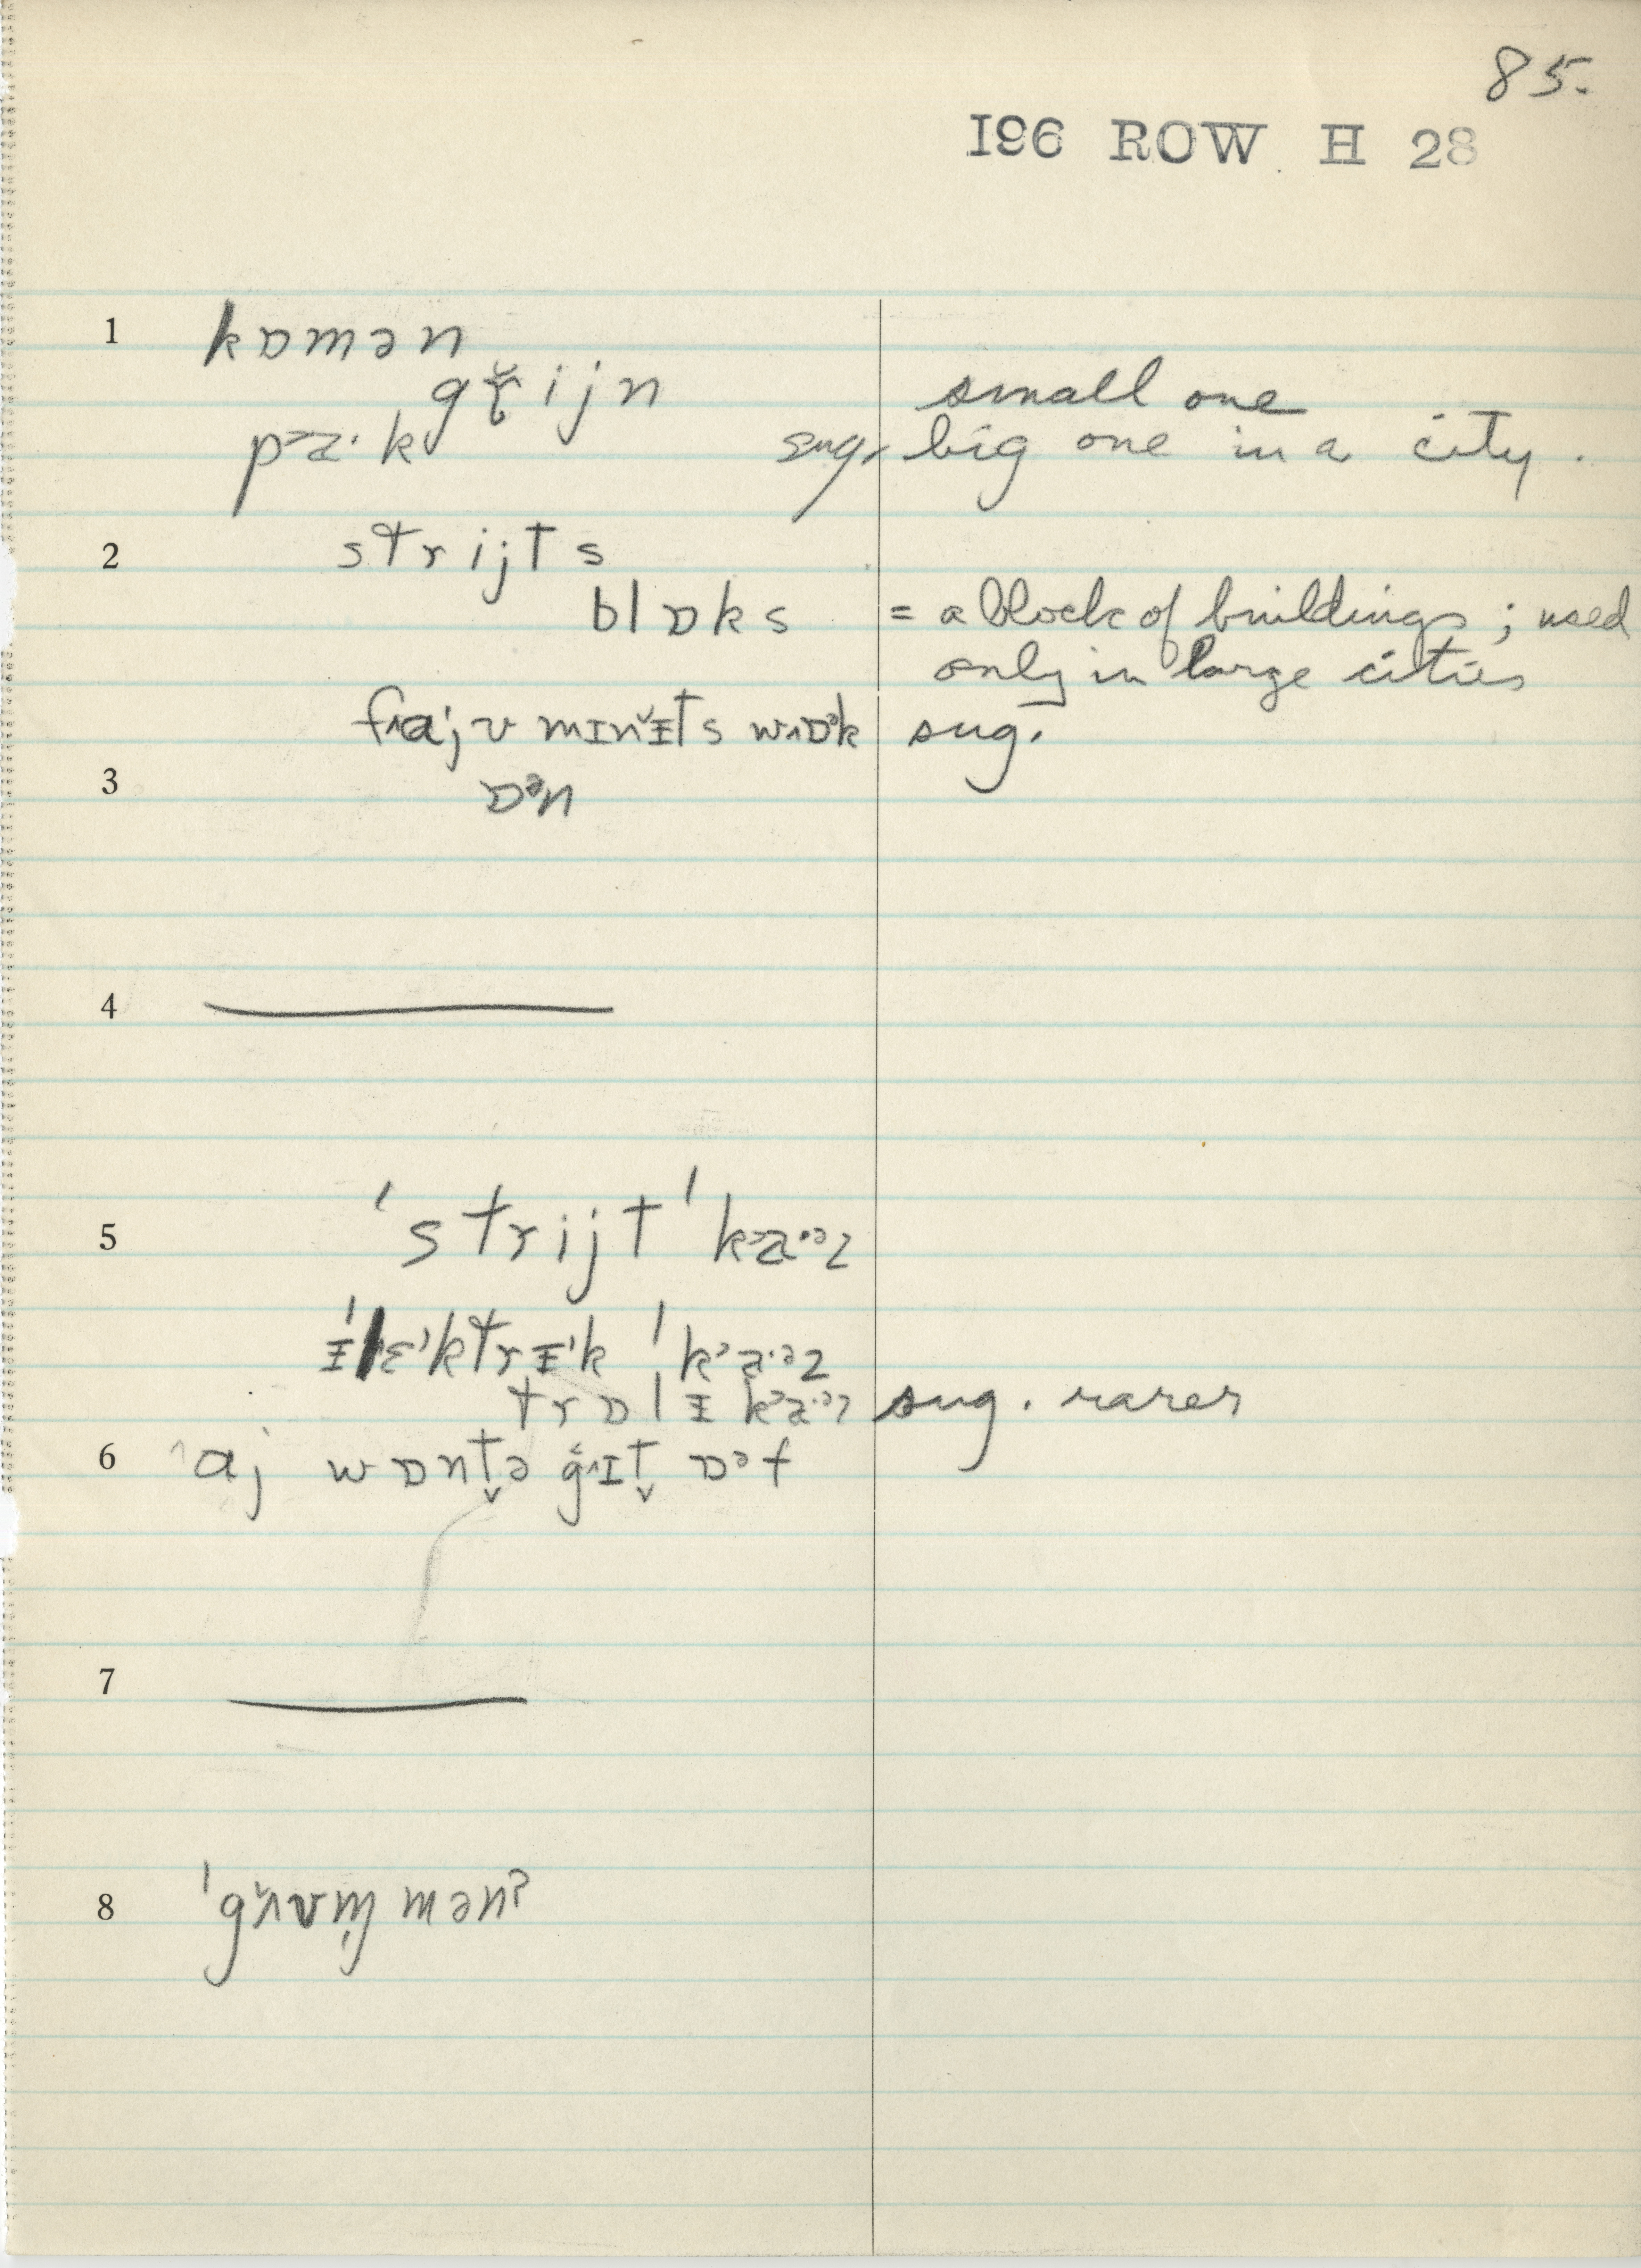 85.
196 ROW H 28
1 kɒmən
gr̆ijn small one
pᵓa·k sug. big one in a city.
2 strijts
blɒks = a block of buildings; used
only in large cities
fᴧajv mɪnɨ̆ts wᴧɒᵊk sug.
3 ɒᵊn
4
5 ˈstrijtˈkᵓa·ᵊz
ɨˈlɛˈktrɨˈk ˈkᵓa·ᵊz
trɒlɨ kᵓa·ᵊz sug. rarer
6 ᴧaj wɒnt̬ə gᴧɪt̬ ɒᵊf
7
8 ˈgʌ̆vm̩mənˀ